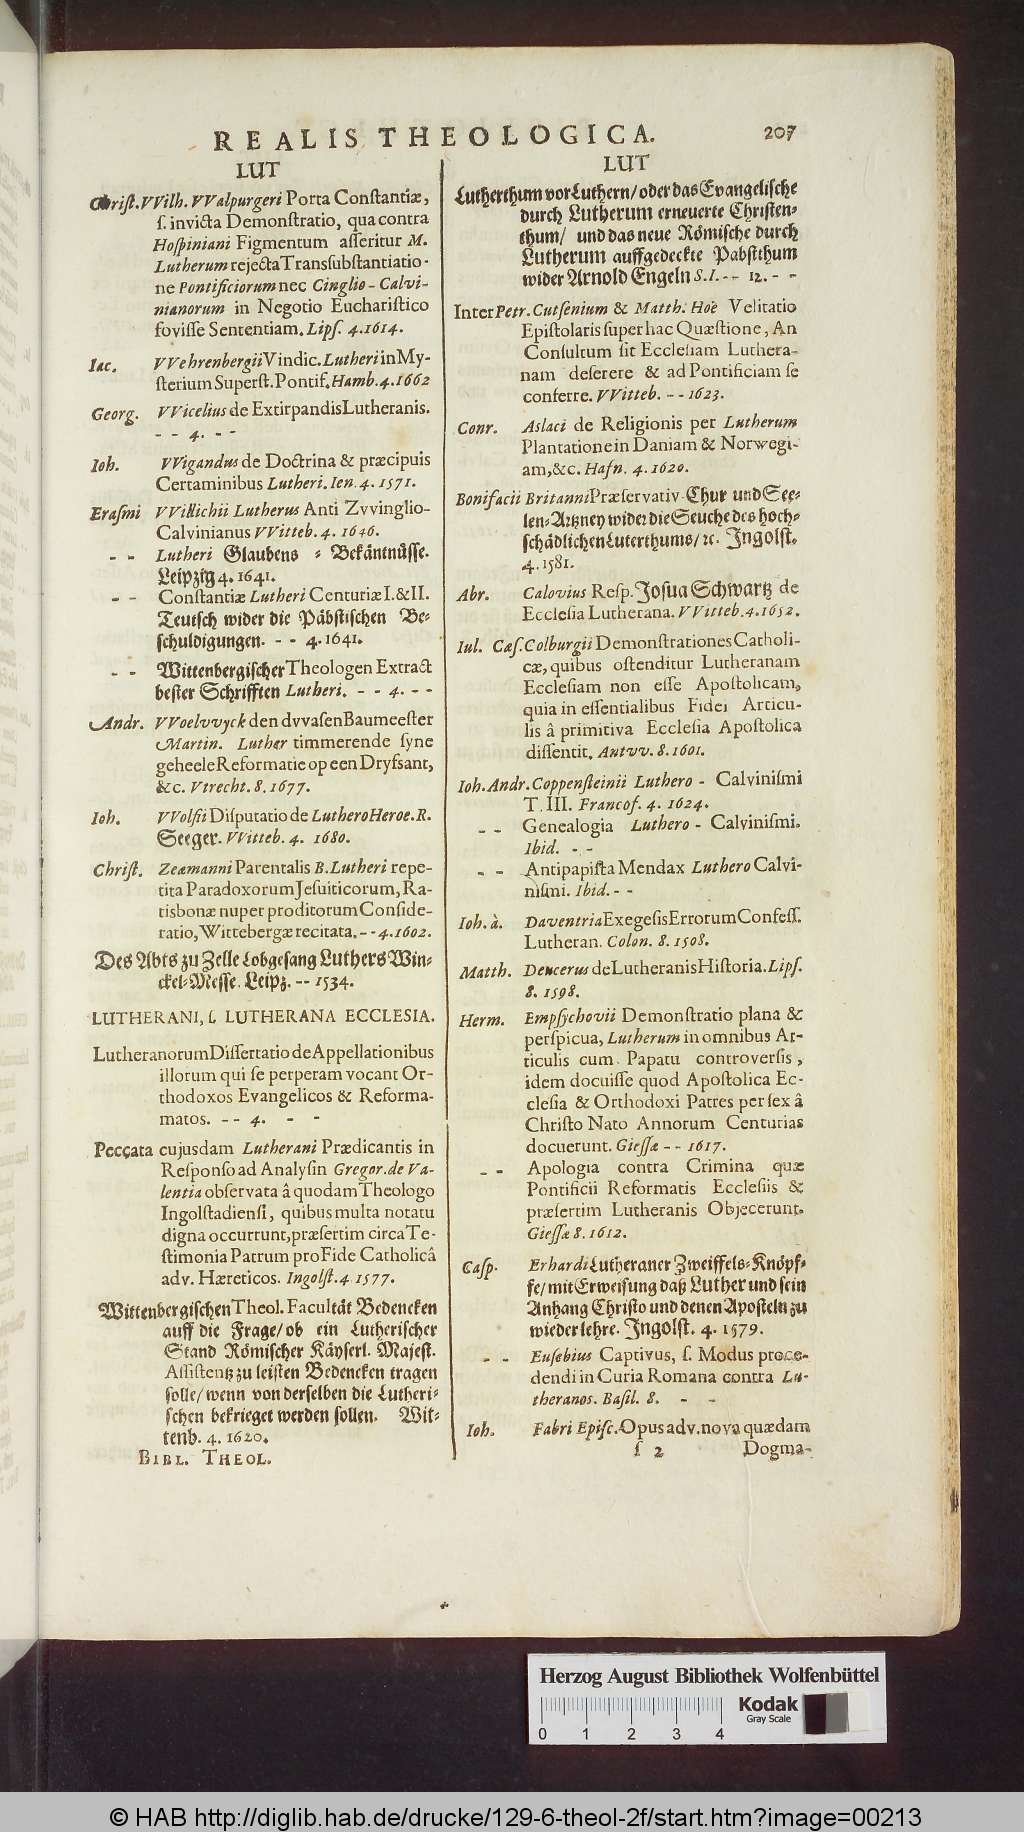 REALIS THEOLOGICA. 207
LUT
Christ. VVilh. VValpurgeri Porta Constantiæ,
s. invicta Demonstratio, qua contra
Hospiniani Figmentum asseritur M.
Lutherum rejecta Transsubstantiatio-
ne Pontificiorum nec Cinglio-Calvi-
nianorum in Negotio Eucharistico
fovisse Sententiam. Lips. 4. 1614.
Iac. VVehrenbergii Vindic. Lutheri in My-
sterium Superst. Pontif. Hamb. 4. 1662
Georg. VVicelius de Extirpandis Lutheranis.
- - 4. - -
Ioh. VVigandus de Doctrina & præcipuis
Certaminibus Lutheri. Ien. 4. 1571.
Erasmi VVillichii Lutherus Anti Zvvinglio-
Calvinianus VVitteb. 4. 1646.
- - Lutheri Glaubens - Bekäntnüsse.
Leipzig 4. 1641.
- - Constantiæ Lutheri Centuriæ I. & II.
Teutsch wider die Päbstischen Be-
schuldigungen. - - 4. 1641.
- - Wittenbergischer Theologen Extract
bester Schrifften Lutheri. - - 4. - -
Andr. VVoelvvyck den dvvasen Baumeester
Martin. Luther timmerende syne
geheele Reformatie op een Dryfsant,
&c. Vtrecht. 8. 1677.
Ioh. VVolfii Disputatio de Luthero Heroe. R.
Seeger. VVitteb. 4. 1680.
Christ. Zeamanni Parentalis B. Lutheri repe-
tita Paradoxorum Jesuiticorum, Ra-
tisbonæ nuper proditorum Conside-
ratio, Wittebergæ recitata. - - 4. 1602.
Des Abts zu Zelle Lobgesang Luthers Win-
ckel-Messe. Leipz. - - 1534.
LUTHERANI, s. LUTHERANA ECCLESIA.
Lutheranorum Dissertatio de Appellationibus
illorum qui se perperam vocant Or-
thodoxos Evangelicos & Reforma-
matos. - - 4. - -
Peccata cujusdam Lutherani Prædicantis in
Responso ad Analysin Gregor. de Va-
lentia observata â quodam Theologo
Ingolstadiensi, quibus multa notatu
digna occurrunt, præsertim circa Te-
stimonia Patrum pro Fide Catholicâ
adv. Hæreticos. Ingolst. 4. 1577.
Wittenbergischen Theol. Facultät Bedencken
auff die Frage/ ob ein Lutherischer
Stand Römischer Käyserl. Majest.
Assistentz zu leisten Bedencken tragen
solle/ wenn von derselben die Lutheri-
schen bekrieget werden sollen. Wit-
tenb. 4. 1620.
BIBL. THEOL.
LUT
Lutherthum vor Luthern/ oder das Evangelische
durch Lutherum erneuerte Christen-
thum/ und das neue Römische durch
Lutherum auffgedeckte Pabstthum
wider Arnold Engeln S. I. - - 12. - -
Inter Petr. Cutsenium & Matth. Hoë Velitatio
Epistolaris super hac Quæstione, An
Consultum sit Ecclesiam Luthera-
nam deserere & ad Pontificiam se
conferre. VVitteb. - - 1623.
Conr. Aslaci de Religionis per Lutherum
Plantatione in Daniam & Norwegi-
am, &c. Hafn. 4. 1620.
Bonifacii Britanni Præservativ-Chur und See-
len-Artzney wider die Seuche des hoch-
schädlichen Luterthums/ ꝛc. Ingolst.
4. 1581.
Abr. Calovius Resp. Josua Schwartz de
Ecclesia Lutherana. VVitteb. 4. 1652.
Iul. Cæs. Colburgii Demonstrationes Catholi-
cæ, quibus ostenditur Lutheranam
Ecclesiam non esse Apostolicam,
quia in essentialibus Fidei Articu-
lis â primitiva Ecclesia Apostolica
dissentit. Antvv. 8. 1601.
Ioh. Andr. Coppensteinii Luthero - Calvinismi
T. III. Francof. 4. 1624.
- - Genealogia Luthero - Calvinismi.
Ibid. - -
- - Antipapista Mendax Luthero Calvi-
nismi. Ibid. - -
Ioh. à. Daventria Exegesis Errorum Confess.
Lutheran. Colon. 8. 1508.
Matth. Dencerus de Lutheranis Historia. Lips.
8. 1598.
Herm. Empsychovii Demonstratio plana &
perspicua, Lutherum in omnibus Ar-
ticulis cum Papatu controversis,
idem docuisse quod Apostolica Ec-
clesia & Orthodoxi Patres per sex â
Christo Nato Annorum Centurias
docuerunt. Giessæ - - 1617.
- - Apologia contra Crimina quæ
Pontificii Reformatis Ecclesiis &
præsertim Lutheranis Objecerunt.
Giessæ 8. 1612.
Casp. Erhardi Lutheraner Zweiffels-Knöpf-
fe/ mit Erweisung daß Luther und sein
Anhang Christo und denen Aposteln zu
wieder lehre. Ingolst. 4. 1579.
- - Eusebius Captivus, s. Modus proce-
dendi in Curia Romana contra Lu-
theranos. Basil. 8. - -
Ioh. Fabri Episc. Opus adv. nova quædam
s 2 Dogma-
Herzog August Bibliothek Wolfenbüttel
0 1 2 3 4
Kodak
Gray Scale
© HAB http://diglib.hab.de/drucke/129-6-theol-2f/start.htm?image=00213